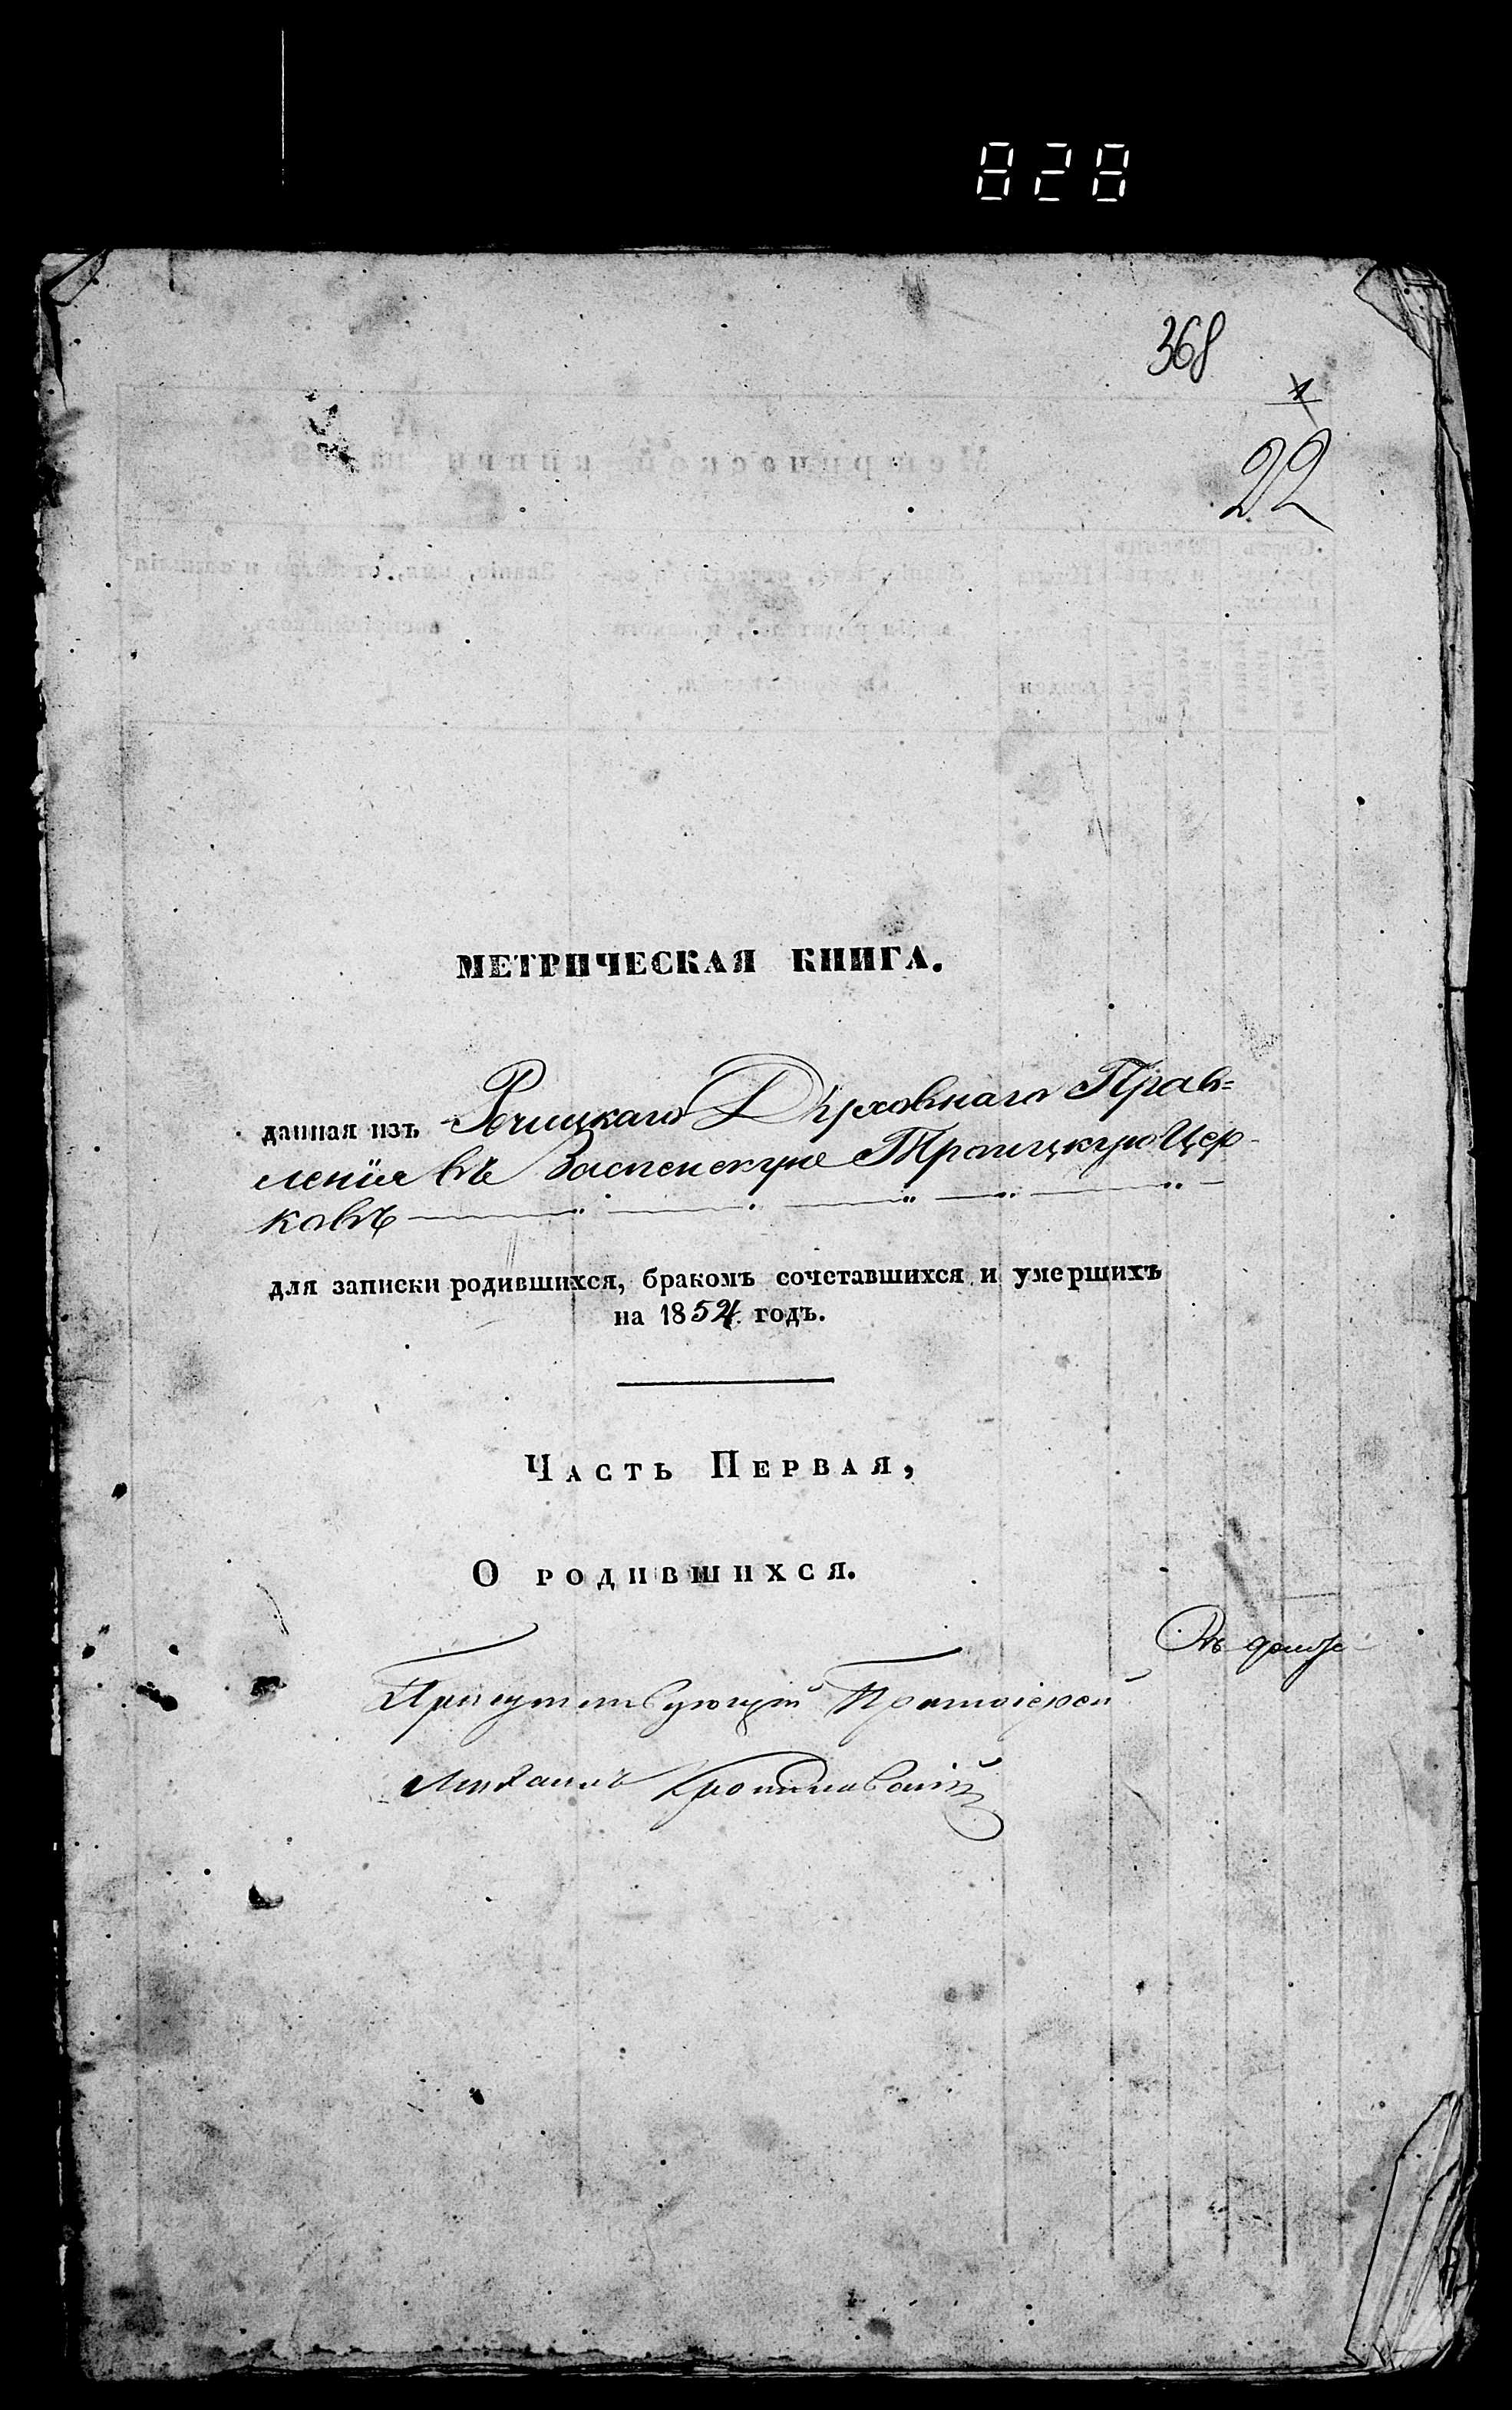 828
368
1
22
МЕТРИЧЕСКАЯ КНИГА.
данная изъ Речицкаго Духовнаго Прав=
ленія въ Заспенскую Троицкую Цер-
ковь
для записки родившихся, бракомъ сочетавшихся и умершихъ
на 1854 годъ.
Часть Первая,
О родившихся.
Присутствующій Протоіерей
Михаилъ